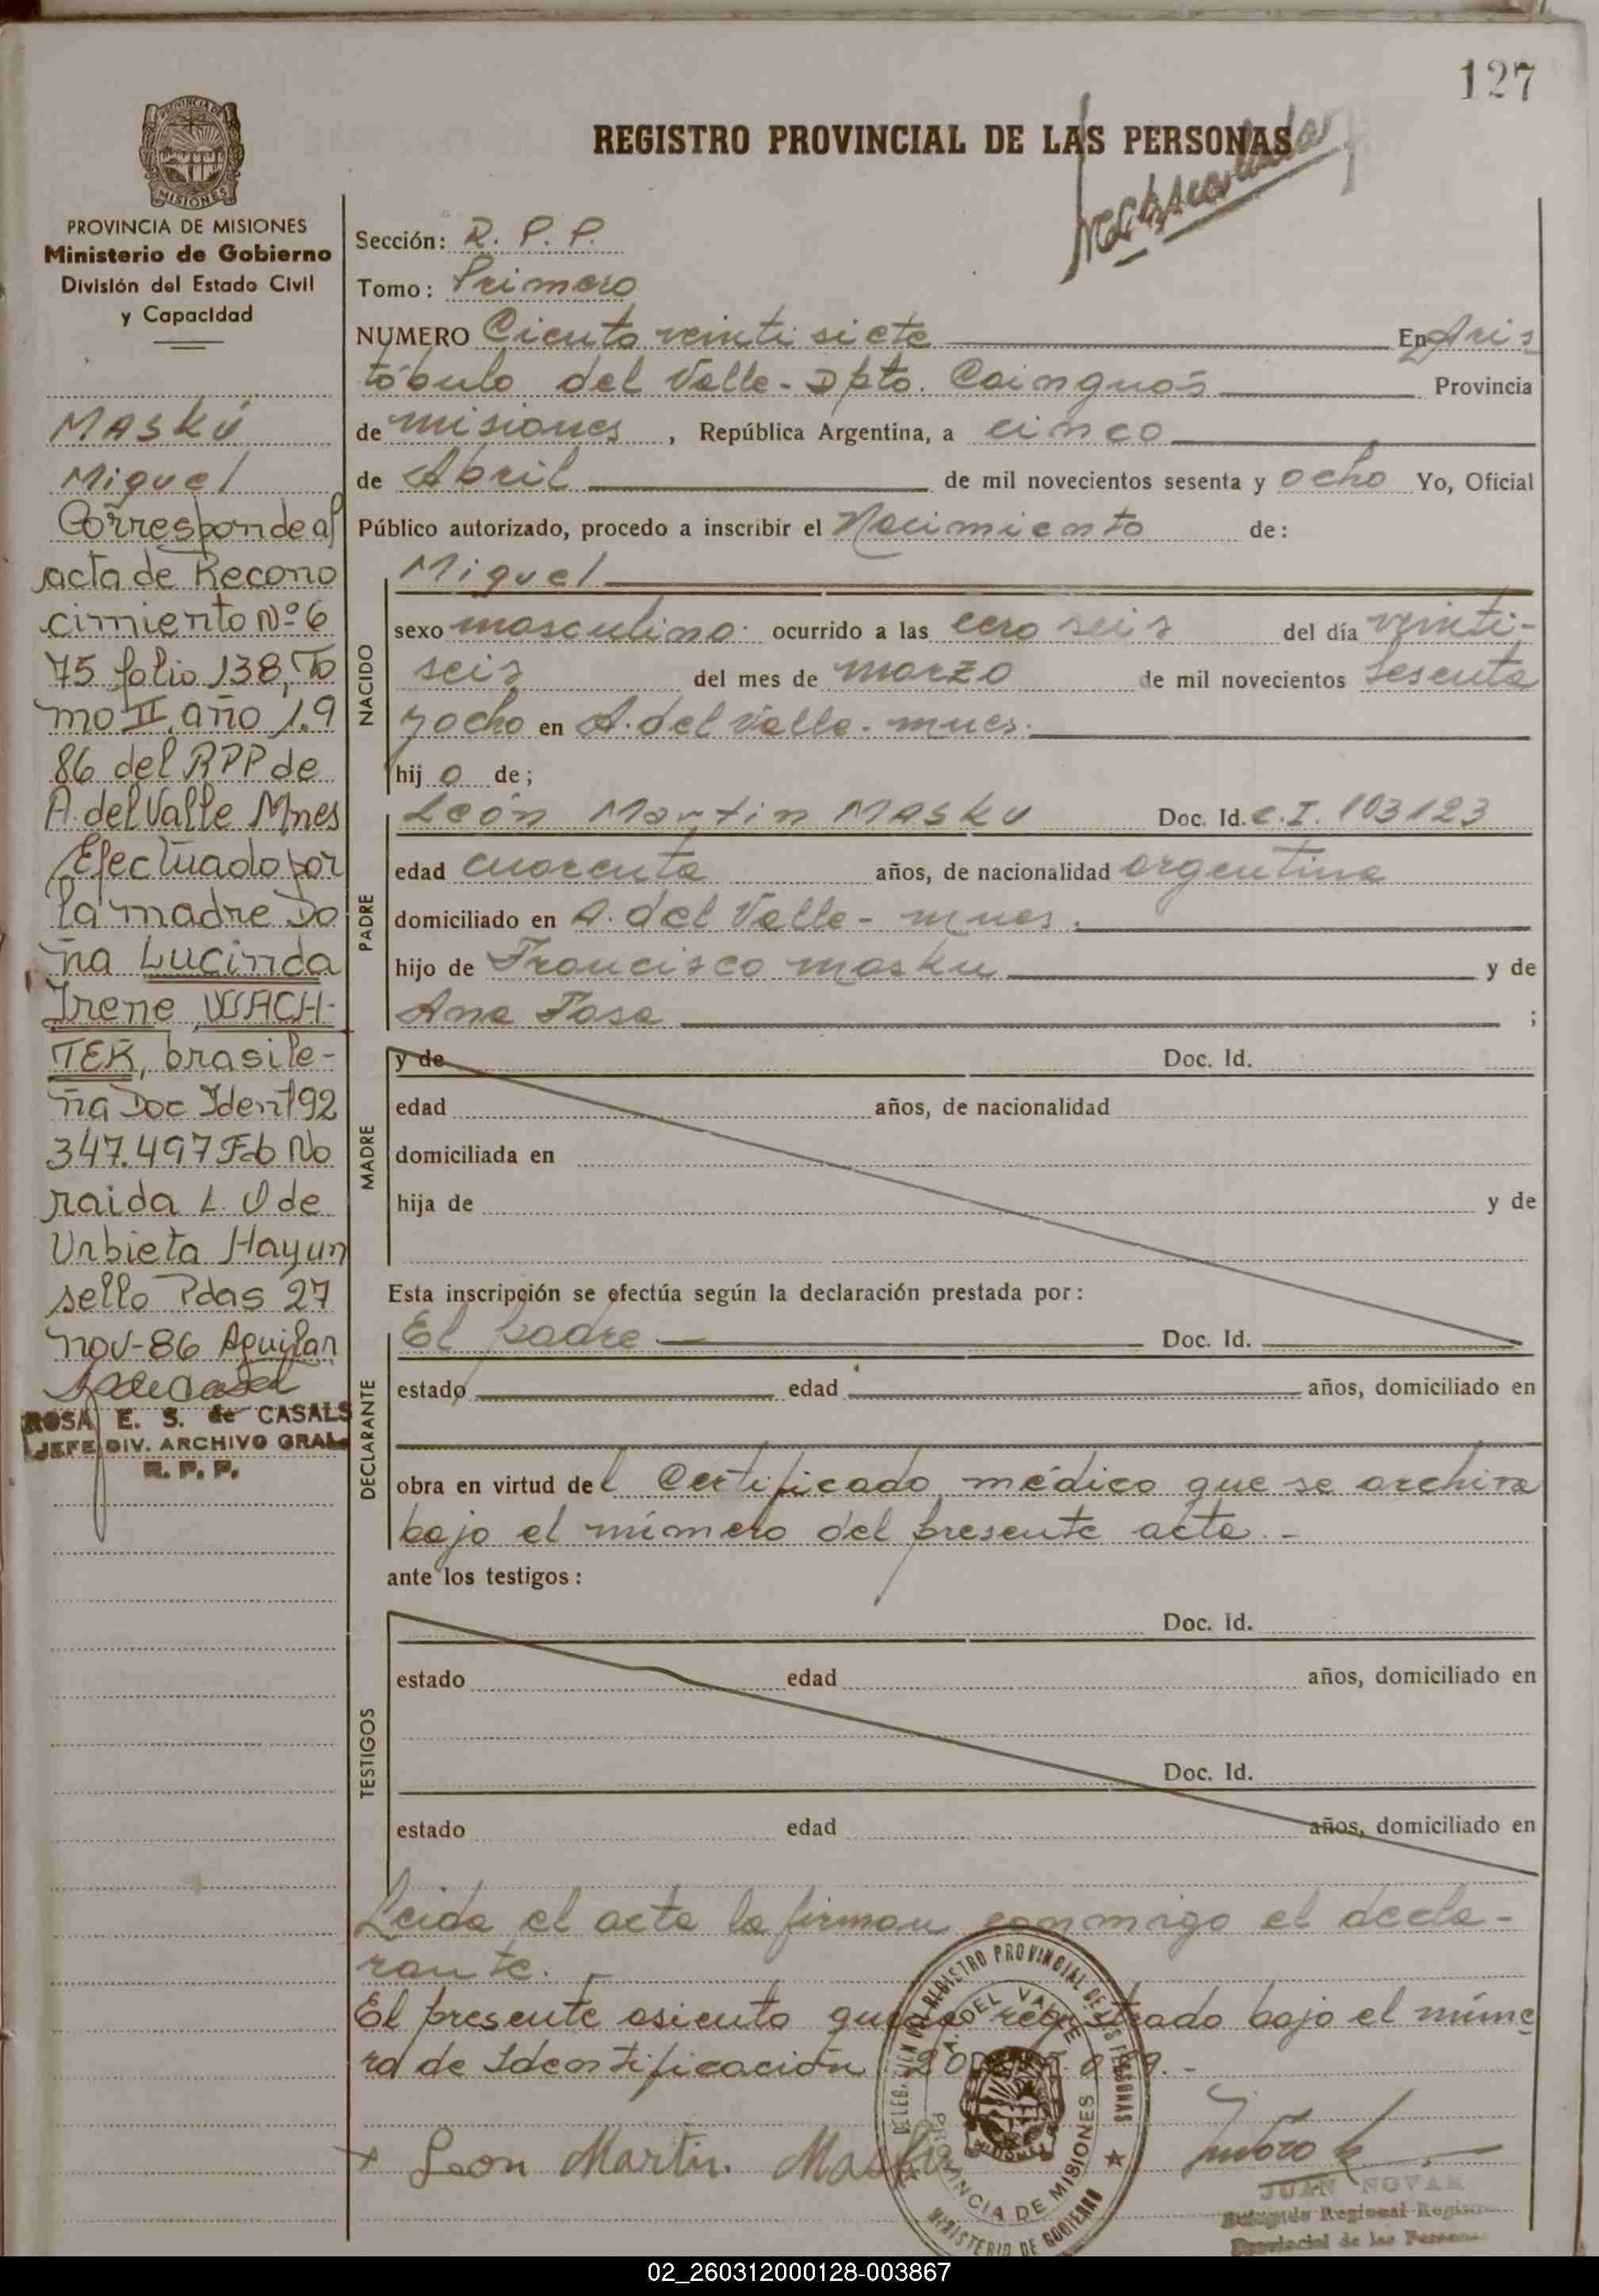 127
REGISTRO PROVINCIAL DE LAS PERSONAS
PROVINCIA DE
MISIONES
PROVINCIA DE MISIONES
Ministerio de Gobierno
División del Estado Civil
y Capacidad
MASKÚ
Miguel
Corresponde al
acta de Recono
cimiento Nº 6
75 folio 138, To
mo II, año 19
86 del RPP de
A. del Valle Mnes
Efectuado por
la madre Do
ña Lucinda
Irene WACH-
TER, brasile-
ña Doc Ident 92
347.497 Fdo No
raida L. V de
Urbieta Hay un
sello Pdas 27
nov-86 Aguilar
ROSA E. S. de CASALS
JEFE DIV. ARCHIVO GRAL
R. P. P.
Sección: R. P. P.
Tomo: Primero
NUMERO Ciento veinti siete En Aris
tóbulo del Valle - Dpto. Cainguás Provincia
de misiones, República Argentina, a cinco
de Abril de mil novecientos sesenta y ocho Yo, Oficial
Público autorizado, procedo a inscribir el Nacimiento de:
NACIDO
Miguel
sexo masculino ocurrido a las cero seis del día veinti-
seis del mes de marzo de mil novecientos sesenta
y ocho en A. del Valle - mnes.
hij o de;
PADRE
León Martin MASKU Doc. Id. C.I. 103123
edad cuarenta años, de nacionalidad argentina
domiciliado en A. del Valle - mnes.
hijo de Francisco masku y de
Ana Fasa ;
MADRE
y de Doc. Id.
edad años, de nacionalidad
domiciliada en
hija de y de
Esta inscripción se efectúa según la declaración prestada por:
DECLARANTE
El padre Doc. Id.
estado edad años, domiciliado en
obra en virtud del Certificado médico que se archiva
bajo el número del presente acta. -
ante los testigos:
TESTIGOS
Doc. Id.
estado edad años, domiciliado en
Doc. Id.
estado edad años, domiciliado en
Leida el acta la firman conmigo el decla-
rante. -
El presente asiento queda registrado bajo el núme
ro de Identificación
Leon Martin Masku
DELEG. REGISTRO PROVINCIAL DE LAS PERSONAS
A. DEL VALLE
PROVINCIA DE MISIONES
MINISTERIO DE GOBIERNO
JUAN NOVAK
Delegado Regional Registro
Provincial de las Personas
02_260312000128-003867